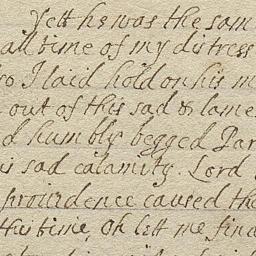 Yett he was the sam
all time of my distress
so I laid hold on his m
out of this sad & lame
d humbly begged Par
is sad calamity. Lord
providence caused the
this time, Oh lett me find